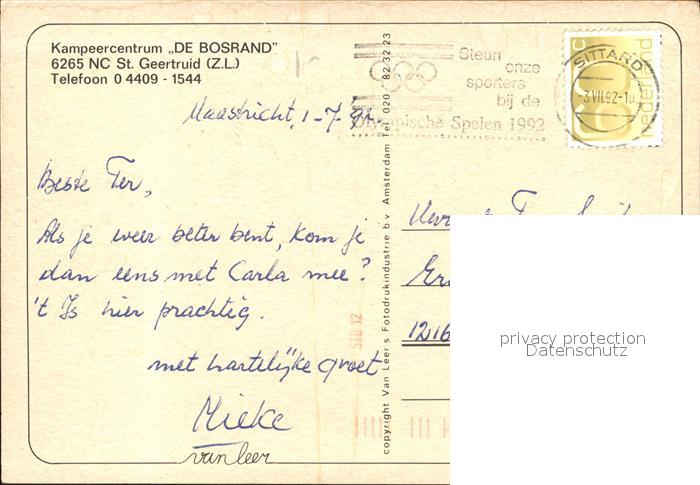 Kampeercentrum „DE BOSRAND"
6265 NC St. Geertruid (Z.L.)
Telefoon 0 4409 - 1544
Steun
onze
sporters
bij de
Olympische Spelen 1992
SITTARD
3 VII.92-1
nederland
Maastricht, 1-7-92.
Beste Ter,
Als je weer beter bent, kom je
dan eens met Carla mee?
't Is hier prachtig.
met hartelijke groet
Mieke
van leer
copyright Van Leer's Fotodrukindustrie b v Amsterdam Tel. 020 - 82 32 23
SID 12
1216
privacy protection
Datenschutz